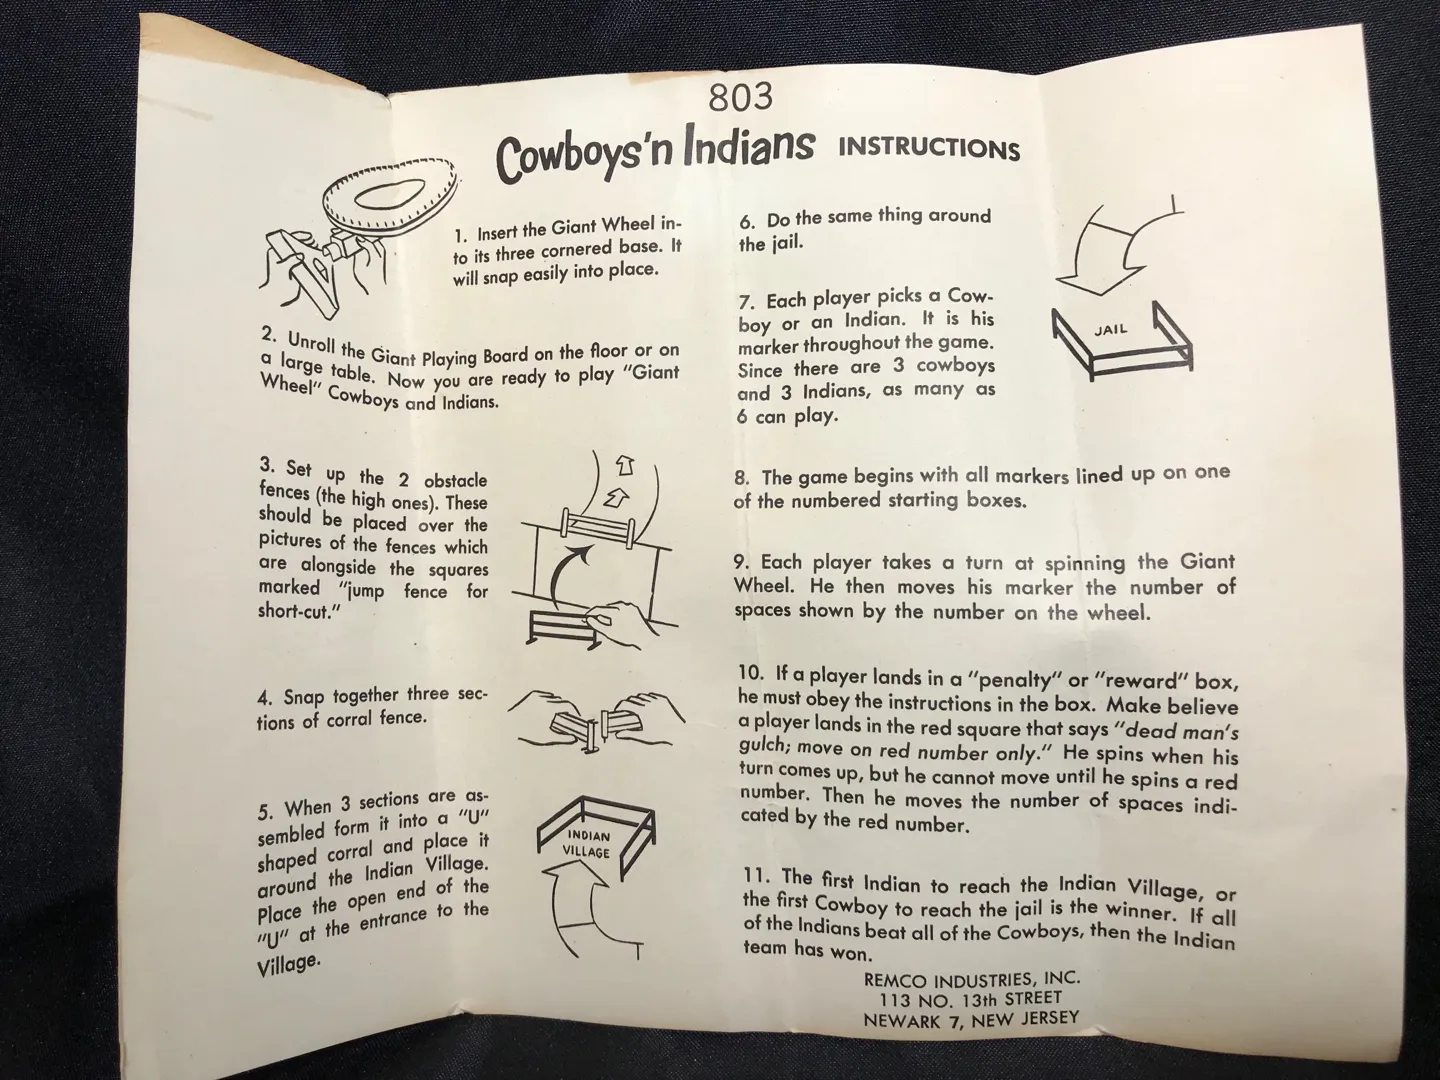 803
Cowboys'n Indians INSTRUCTIONS
1. Insert the Giant Wheel in-
to its three cornered base. It
will snap easily into place.
2. Unroll the Giant Playing Board on the floor or on
a large table. Now you are ready to play "Giant
Wheel" Cowboys and Indians.
3. Set up the 2 obstacle
fences (the high ones). These
should be placed over the
pictures of the fences which
are alongside the squares
marked "jump fence for
short-cut."
4. Snap together three sec-
tions of corral fence.
5. When 3 sections are as-
sembled form it into a "U"
shaped corral and place it
around the Indian Village.
Place the open end of the
"U" at the entrance to the
Village.
INDIAN
VILLAGE
6. Do the same thing around
the jail.
7. Each player picks a Cow-
boy or an Indian. It is his
marker throughout the game.
Since there are 3 cowboys
and 3 Indians, as many as
6 can play.
JAIL
8. The game begins with all markers lined up on one
of the numbered starting boxes.
9. Each player takes a turn at spinning the Giant
Wheel. He then moves his marker the number of
spaces shown by the number on the wheel.
10. If a player lands in a "penalty" or "reward" box,
he must obey the instructions in the box. Make believe
a player lands in the red square that says "dead man's
gulch; move on red number only." He spins when his
turn comes up, but he cannot move until he spins a red
number. Then he moves the number of spaces indi-
cated by the red number.
11. The first Indian to reach the Indian Village, or
the first Cowboy to reach the jail is the winner. If all
of the Indians beat all of the Cowboys, then the Indian
team has won.
REMCO INDUSTRIES, INC.
113 NO. 13th STREET
NEWARK 7, NEW JERSEY